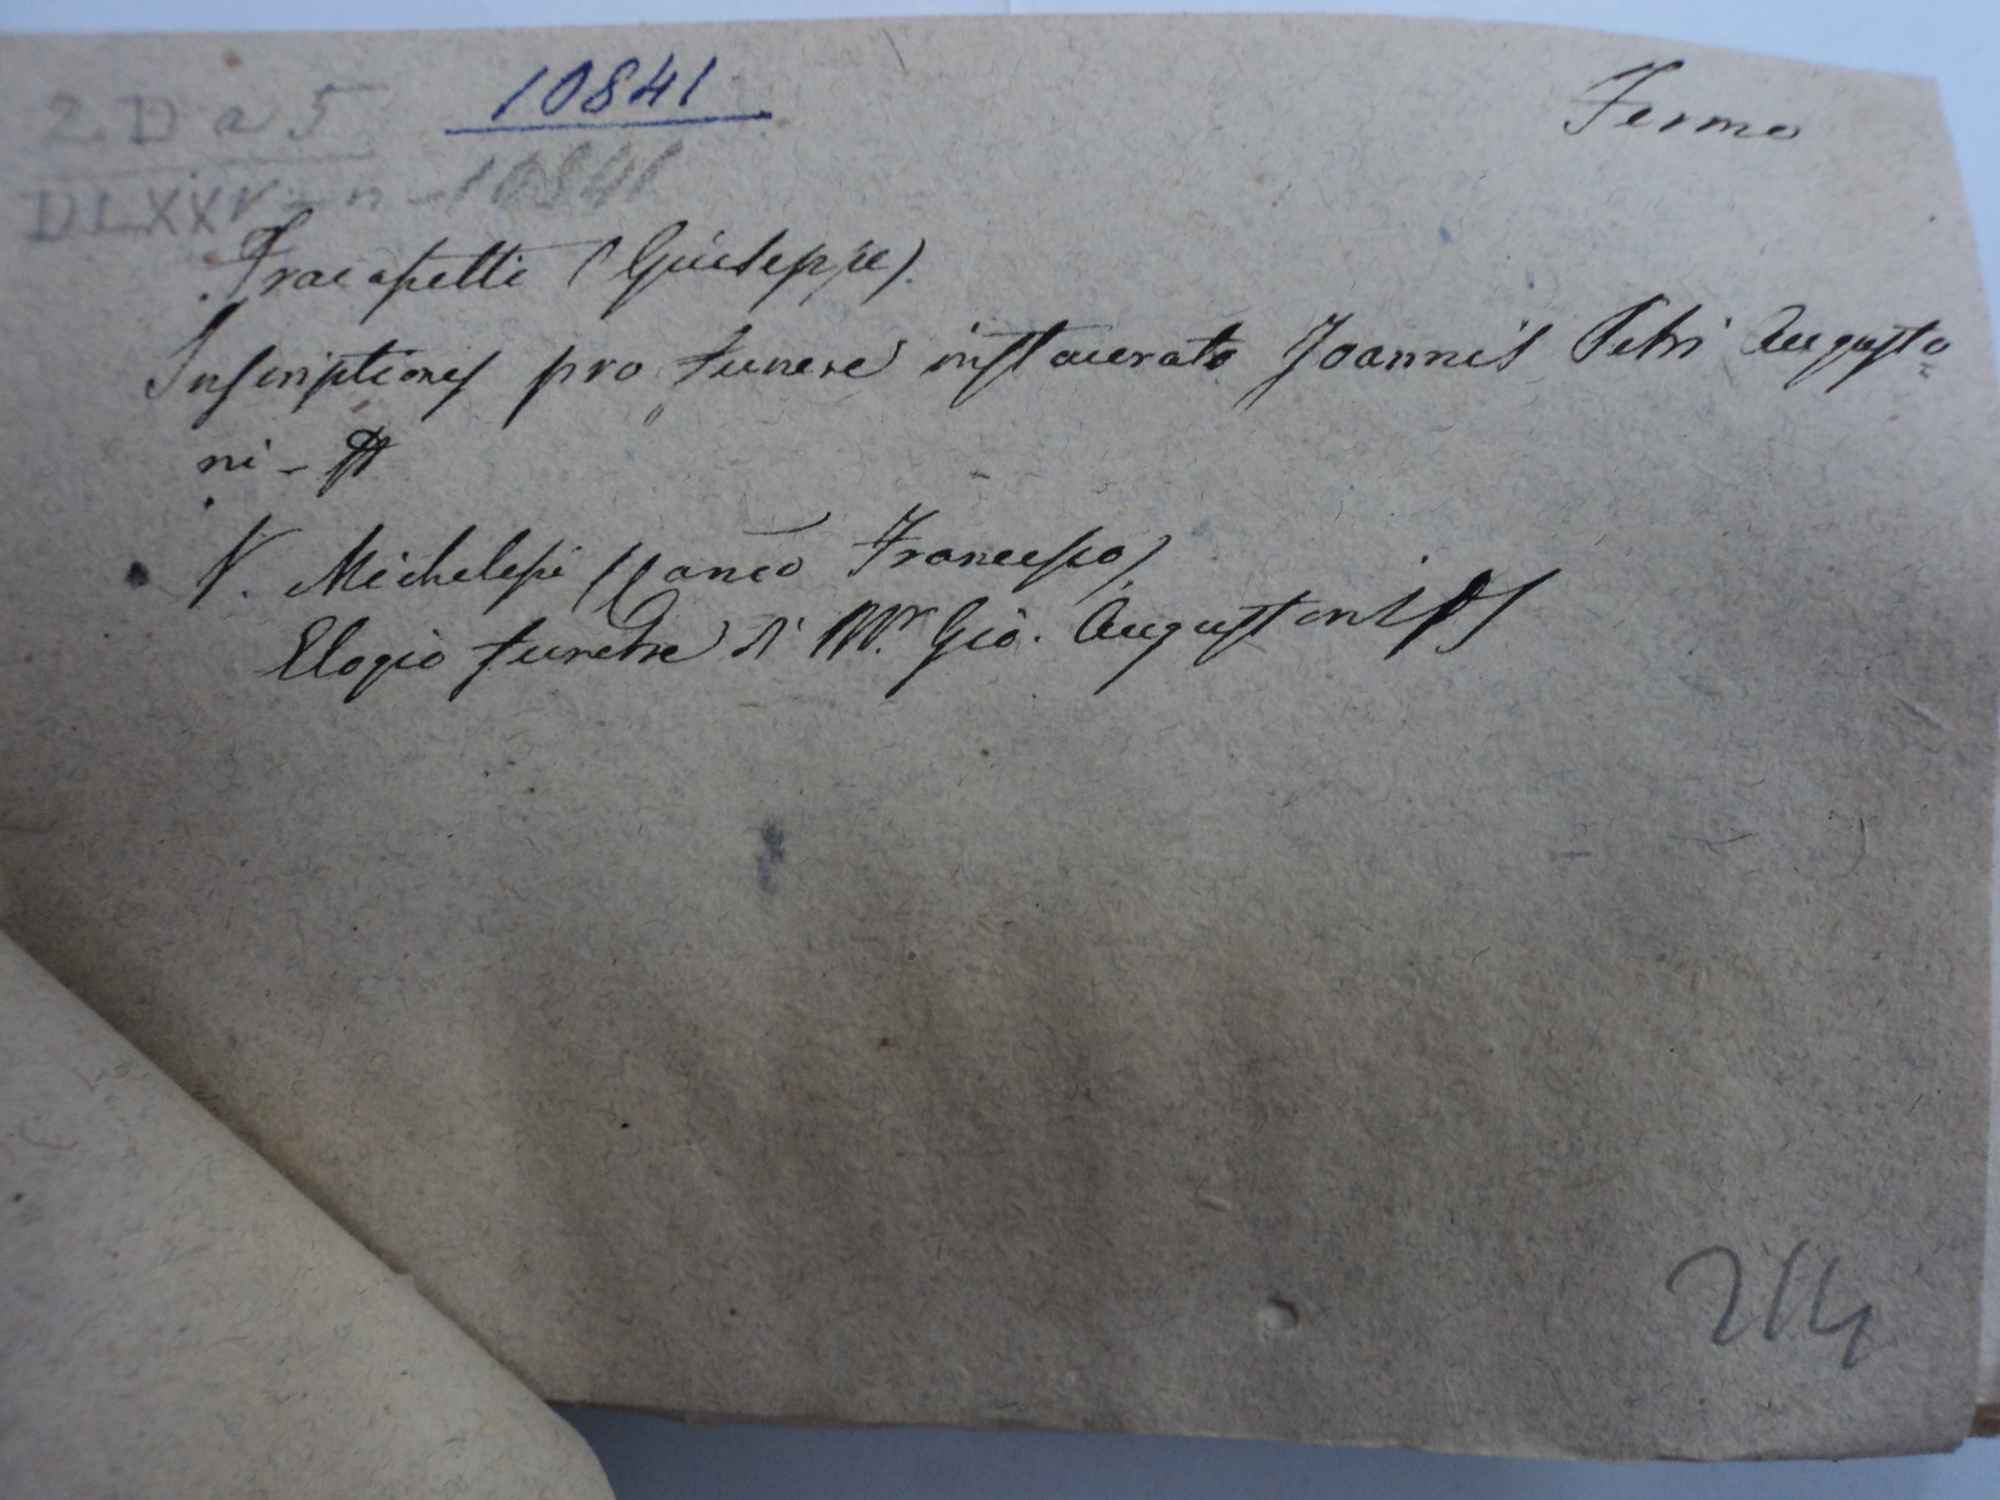 2 D a 5
10841
Fermo
DLXXV - n - 10841
Fracapetti (Giuseppe).
Inscriptiones pro funere instaurato Joannis Petri Augusto=
ni -
V. Michelesi (Canco Francesco)
Elogio funebre di Mr. Gio. Augustoni
214